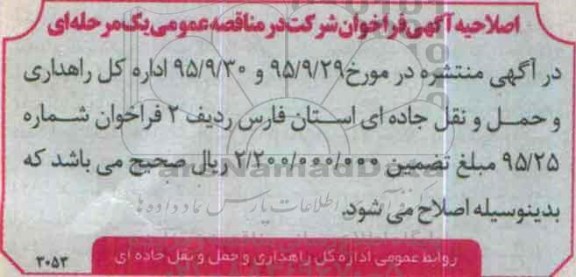 اصلاحیه آگهی فراخوان شرکت در مناقصه عمومی یک مرحله‌ای
در آگهی منتشره در مورخ ۹۵/۹/۲۹ و ۹۵/۹/۳۰ اداره کل راهداری
و حمل و نقل جاده ای استان فارس ردیف ۲ فراخوان شماره
۹۵/۲۵ مبلغ تضمین ۲/۲۰۰/۰۰۰/۰۰۰ ریال صحیح می باشد که
بدینوسیله اصلاح می شود.
روابط عمومی اداره کل راهداری و حمل و نقل جاده ای
۳۰۵۳